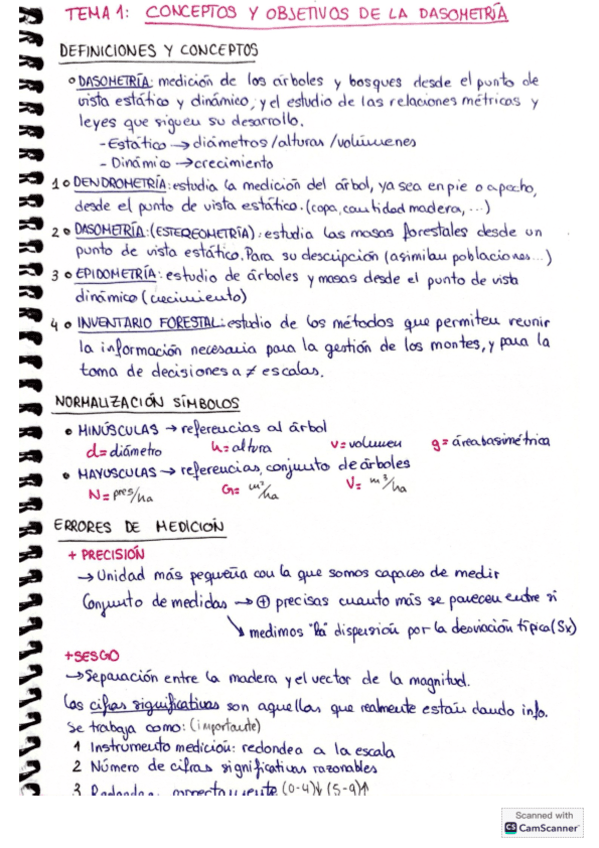 TEMA 1: CONCEPTOS Y OBJETIVOS DE LA DASOMETRÍA
DEFINICIONES Y CONCEPTOS
DASOMETRÍA: medición de los árboles y bosques desde el punto de
vista estático y dinámico, y el estudio de las relaciones métricas y
leyes que siguen su desarrollo.
- Estático → diámetros/alturas/volúmenes
- Dinámico → crecimiento
1 DENDROMETRÍA: estudia la medición del árbol, ya sea en pie o apeado,
desde el punto de vista estático. (copa, cantidad madera, ...)
2 DASOMETRÍA: (ESTEREOMETRÍA): estudia las masas forestales desde un
punto de vista estático. Para su descripción (asimilan poblaciones...)
3 EPIDOMETRÍA: estudio de árboles y masas desde el punto de vista
dinámico (crecimiento)
4 INVENTARIO FORESTAL: estudio de los métodos que permiten reunir
la información necesaria para la gestión de los montes, y para la
toma de decisiones a ≠ escalas.
NORMALIZACIÓN SÍMBOLOS
• MINÚSCULAS → referencias al árbol
d= diámetro h= altura v= volumen g= área basimétrica
• MAYUSCULAS → referencias, conjunto de árboles
N= pies/ha G= m²/ha V= m³/ha
ERRORES DE MEDICIÓN
+ PRECISIÓN
→ Unidad más pequeña con la que somos capaces de medir
Conjunto de medidas → ⊕ precisas cuanto más se parecen entre si
↘ medimos "la" dispersión por la desviación típica (Sx)
+ SESGO
→ Separación entre la madera y el vector de la magnitud.
Las cifras significativas son aquellas que realmente están dando info.
Se trabaja como: (importante)
1 Instrumento medición: redondea a la escala
2 Número de cifras significativas razonables
3 Redondea correctamente (0-4)↓ (5-9)↑
Scanned with
CS CamScanner